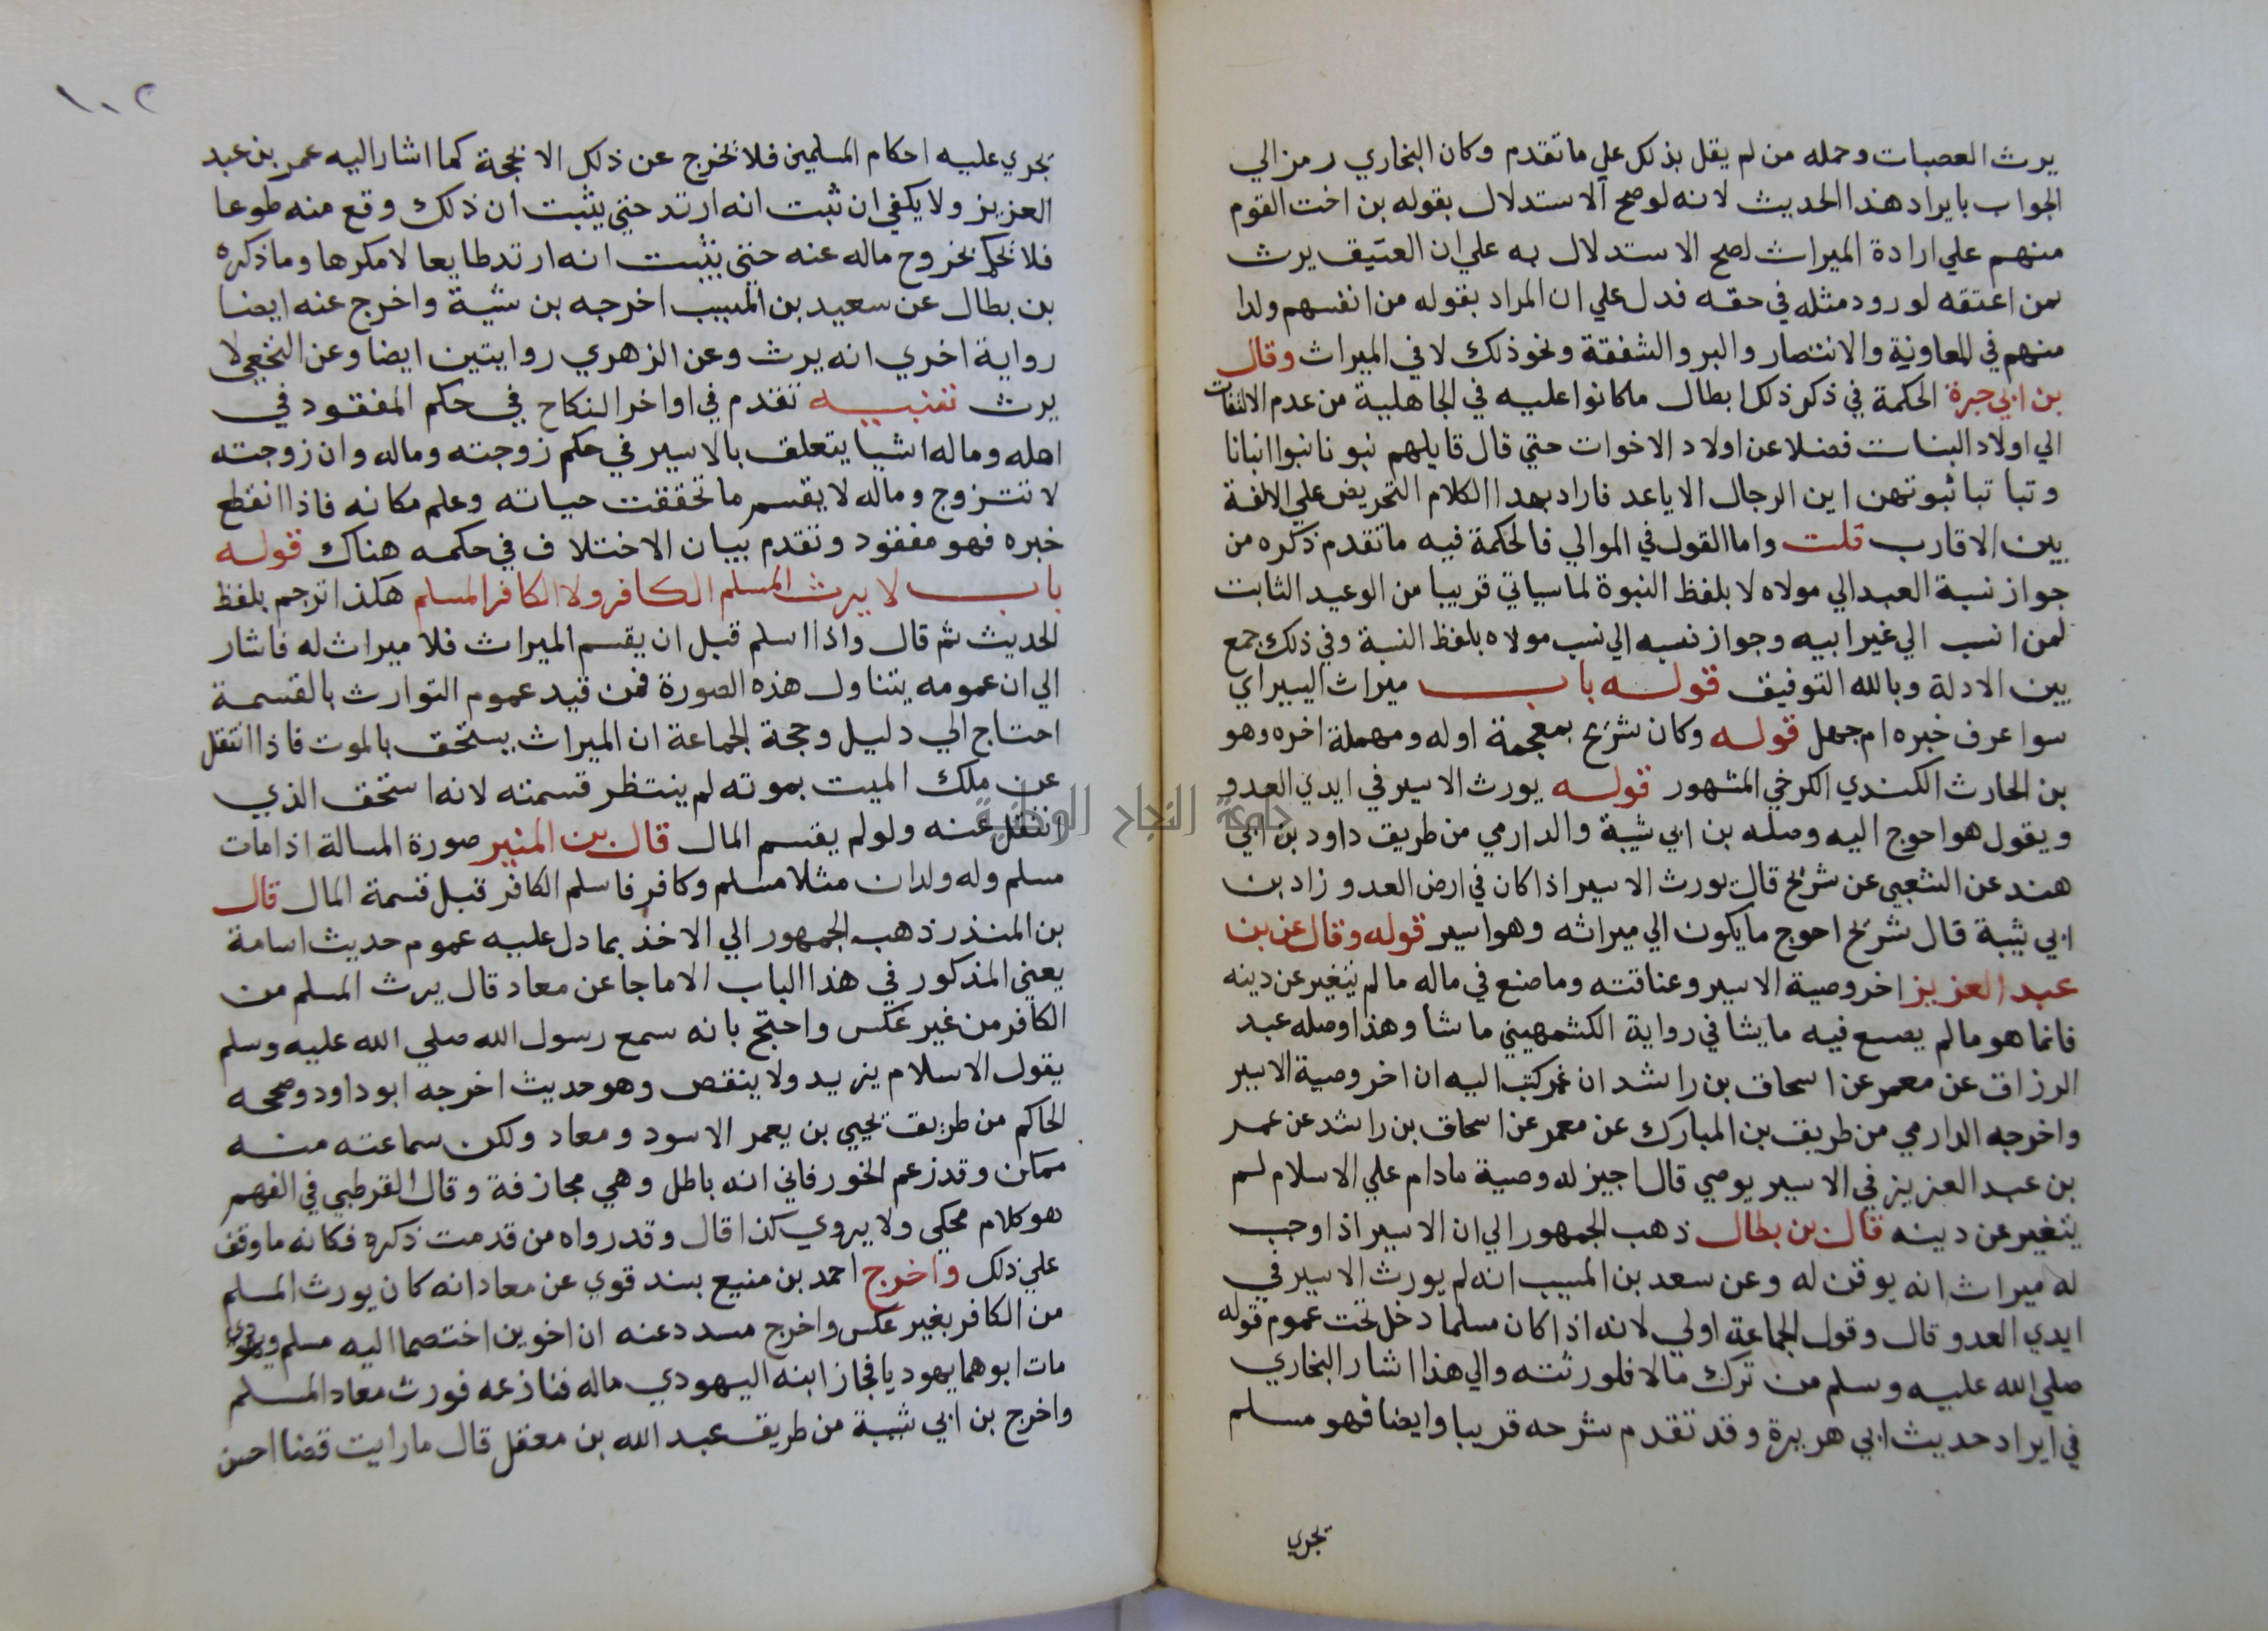 يرث العصبات وحمله من لم يقل بذلك علي ما تقدم وكان البخاري رمز الي
الجواب بايراد هذا الحديث لانه لو صح الاستدلال بقوله بن اخت القوم
منهم علي ارادة الميراث لصح الاستدلال به علي ان العتيق يرث
ممن اعتقه لورود مثله في حقه فدل علي ان المراد بقوله من انفسهم ولذا
منهم في المعاونة والانتصار والبر والشفقة ونحو ذلك لا في الميراث وقال
بن ابي جمرة الحكمة في ذكر ذلك ابطال ما كانوا عليه في الجاهلية من عدم الالتفات
الي اولاد البنات فضلا عن اولاد الاخوات حتي قال قايلهم نبونا نبوا انبانا
وتبا تبا ثبوتهن اين الرجال الاياعد فاراد بهذا الكلام التحريض علي الالفة
بين الاقارب قلت واما القول في الموالي فالحكمة فيه ما تقدم ذكره من
جواز نسبة العبد الي مولاه لا بلفظ النبوة لما سياتي قريبا من الوعيد الثابت
لمن انسب الي غير ابيه وجواز نسبه الي نسب مولاه بلفظ النسبة وفي ذلك جمع
بين الادلة وبالله التوفيق قوله باب ميراث اليسير اي
سوا عرف خبره ام جهل قوله وكان شريح بمعجمة اوله ومهملة اخره وهو
بن الحارث الكندي الكرخي المشهور قوله يورث الاسير في ايدي العدو
ويقول هو احوج اليه وصله بن ابي شيبة والدارمي من طريق داود بن ابي
هند عن الشعبي عن شريح قال يورث الاسير اذا كان في ارض العدو زاد بن
ابي شيبة قال شريح احوج ما يكون الي ميراثه وهو اسير قوله وقال عن بن
عبد العزيز اخر وصية الاسير وعناقته وما صنع في ماله ما لم يتغير عن دينه
فانما هو ما لم يصنع فيه ما يشا في رواية الكشمهيني ما شا وهذا وصله عبد
الرزاق عن معمر عن اسحاق بن راشد ان عمر كتب اليه ان اخر وصية الاسير
واخرجه الدارمي من طريق بن المبارك عن معمر عن اسحاق بن راشد عن عمر
بن عبد العزيز في الاسير يوصي قال اجيز له وصية ما دام علي الاسلام لم
يتغير عن دينه قال بن بطال ذهب الجمهور الي ان الاسير اذا وجب
له ميراث انه يوقف له وعن سعد بن المسيب انه لم يورث الاسير في
ايدي العدو قال وقول الجماعة اولي لانه اذا كان مسلما دخل تحت عموم قوله
صلي الله عليه وسلم من ترك مالا فلورثته والي هذا اشار البخاري
في ايراد حديث ابي هريرة وقد تقدم شرحه قريبا وايضا فهو مسلم
تجري
١٠٢
تجري عليه احكام المسلمين فلا تخرج عن ذلك الا بحجة كما اشار اليه عمر بن عبد
العزيز ولا يكفي ان ثبت انه ارتد حتي يثبت ان ذلك وقع منه طوعا
فلا تحكم بخروج ماله عنه حتي يثبت انه ارتد طايعا لا مكرها وما ذكره
بن بطال عن سعيد بن المسيب اخرجه بن شيبة واخرج عنه ايضا
رواية اخري انه يرث وعن الزهري روايتين ايضا وعن النخعي لا
يرث تنبيه تقدم في اواخر النكاح في حكم المفقود في
اهله وماله اشيا يتعلق بالاسير في حكم زوجته وماله وان زوجته
لا تتزوج وماله لا يقسم ما تحققت حياته وعلم مكانه فاذا انقطع
خبره فهو مفقود وتقدم بيان الاختلاف في حكمه هناك قوله
باب لا يرث المسلم الكافر ولا الكافر المسلم هكذا ترجم بلفظ
الحديث ثم قال واذا اسلم قبل ان يقسم الميراث فلا ميراث له فاشار
الي ان عمومه يتناول هذه الصورة فمن قيد عموم التوارث بالقسمة
احتاج الي دليل وحجة الجماعة ان الميراث يستحق بالموت فاذا انتقل
عن ملك الميت بموته لم ينتظر قسمته لانه استحق الذي
انتقل عنه ولو لم يقسم المال قال بن المنير صورة المسالة اذا مات
مسلم وله ولدان مثلا مسلم وكافر فاسلم الكافر قبل قسمة المال قال
بن المنذر ذهب الجمهور الي الاخذ بما دل عليه عموم حديث اسامة
يعني المذكور في هذا الباب الا ما جا عن معاد قال يرث المسلم من
الكافر من غير عكس واحتج بانه سمع رسول الله صلي الله عليه وسلم
يقول الاسلام يزيد ولا ينقص وهو حديث اخرجه ابو داود وصححه
الحاكم من طريق يحيي بن يعمر الاسود ومعاد ولكن سماعته منه
ممكن وقد زعم الخورفاني انه باطل وهي مجازفة وقال القرطبي في الفهم
هو كلام محكي ولا يروي كذا قال وقد رواه من قدمت ذكره فكانه ما وقف
علي ذلك واخرج احمد بن منيع بسند قوي عن معاد انه كان يورث المسلم
من الكافر بغير عكس واخرج مسدد عنه ان اخوين اختصما اليه مسلم ويهودي
مات ابوهما يهوديا فجاز ابنه اليهودي ماله فنازعه فورث معاد المسلم
واخرج بن ابي شيبة من طريق عبد الله بن معقل قال ما رايت قضا احسن
جامعة النجاح الوطنية